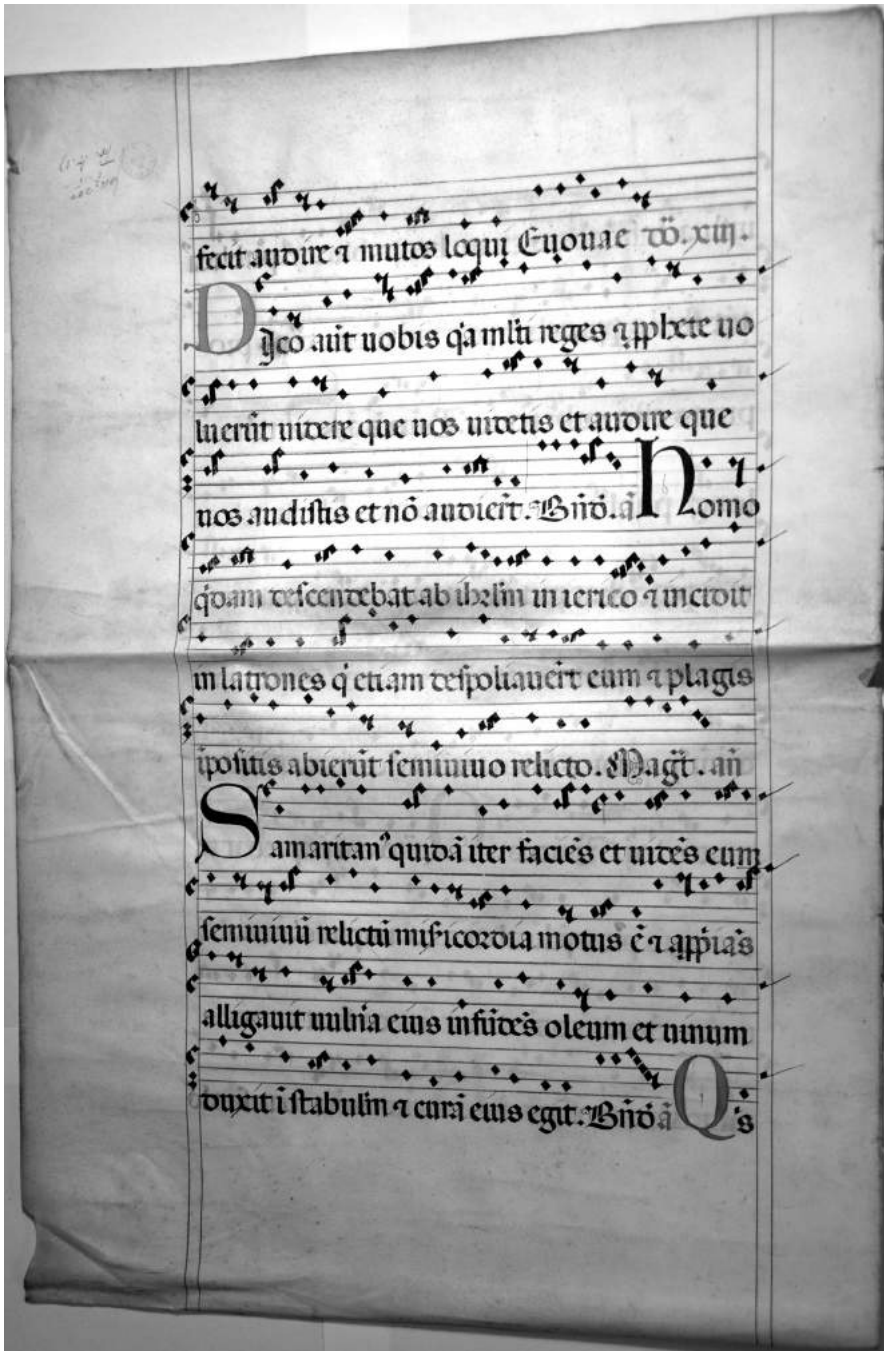 fecit audire ⁊ mutos loqui Euouae dō. xiii.
Dico aūt uobis q̓a ml̄ti reges ⁊ ꝓphete uo
luerūt uidere que uos uidetis et audire que
uos audistis et nō audier̄t. Bn̄d. ā Homo
q̓dam descendebat ab ihrl̄m in ierico ⁊ incidit
in latrones q̓ etiam despoliauer̄t eum ⁊ plagis
īpositis abierūt semiuiuo relicto. Magt̄. an̄
Samaritanꝰ quidā iter faciēs et uidēs eum
semiuiuū relictū misericordia motus ē ⁊ apꝓiās
alligauit uuln̓a eius infūdēs oleum et uinum
duxit ī stabulū ⁊ curā eius egit. Bn̄d ā Q̓s